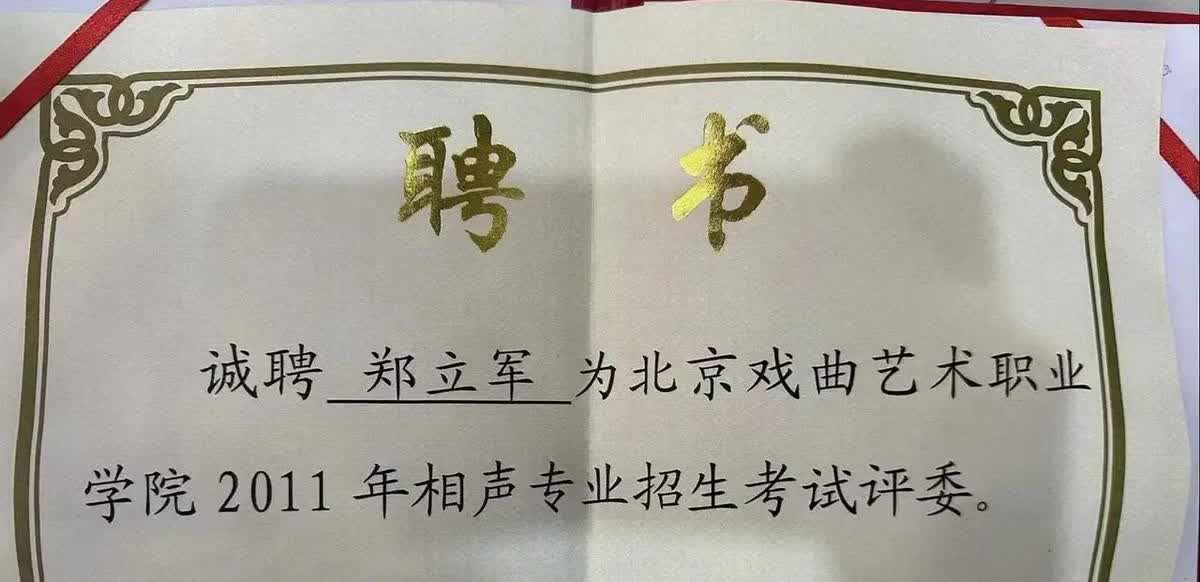 聘书
诚聘 郑立军 为北京戏曲艺术职业
学院 2011 年相声专业招生考试评委。